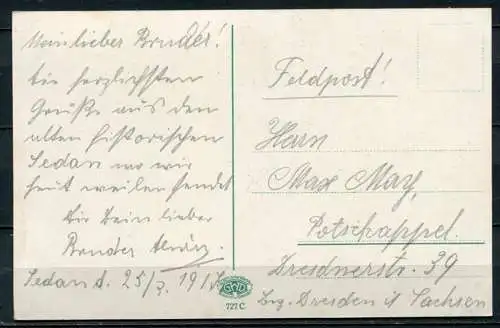 Mein lieber Bruder!
die herzlichsten
Grüße aus dem
alten historischen
Sedan wo wir
heut weilen sendet
Dir Dein lieber
Bruder
Sedan d. 25/3. 191
Feldpost!
Herrn
Max May,
Potschappel.
Dresdnerstr. 39
Bez. Dresden i/ Sachsen
727 C